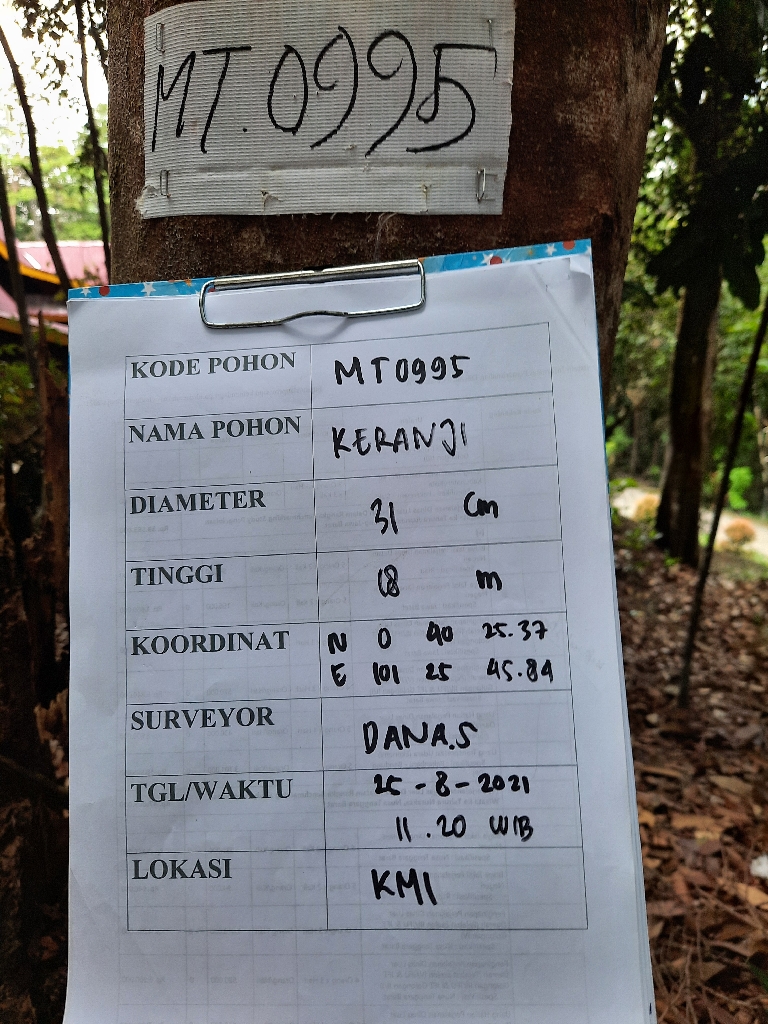 MT.0995
KODE POHON MT0995
NAMA POHON KERANJI
DIAMETER 31 Cm
TINGGI 18 m
KOORDINAT N 0 40 25.37
E 101 25 45.84
SURVEYOR DANA.S
TGL/WAKTU 25-8-2021
11.20 WIB
LOKASI KMI